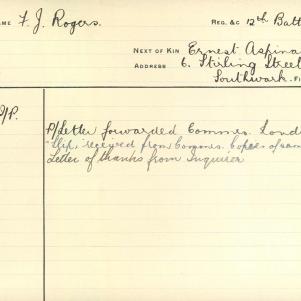 AME F. J. Rogers.
REG. &C 12th Batt
NEXT OF KIN Ernest Aspina
ADDRESS 6. Stirling Street
Southwark.
/P. P/Letter forwarded Commrs. Lond
Slip, received from Commrs. Copies of sam
Letter of thanks from Inquirer